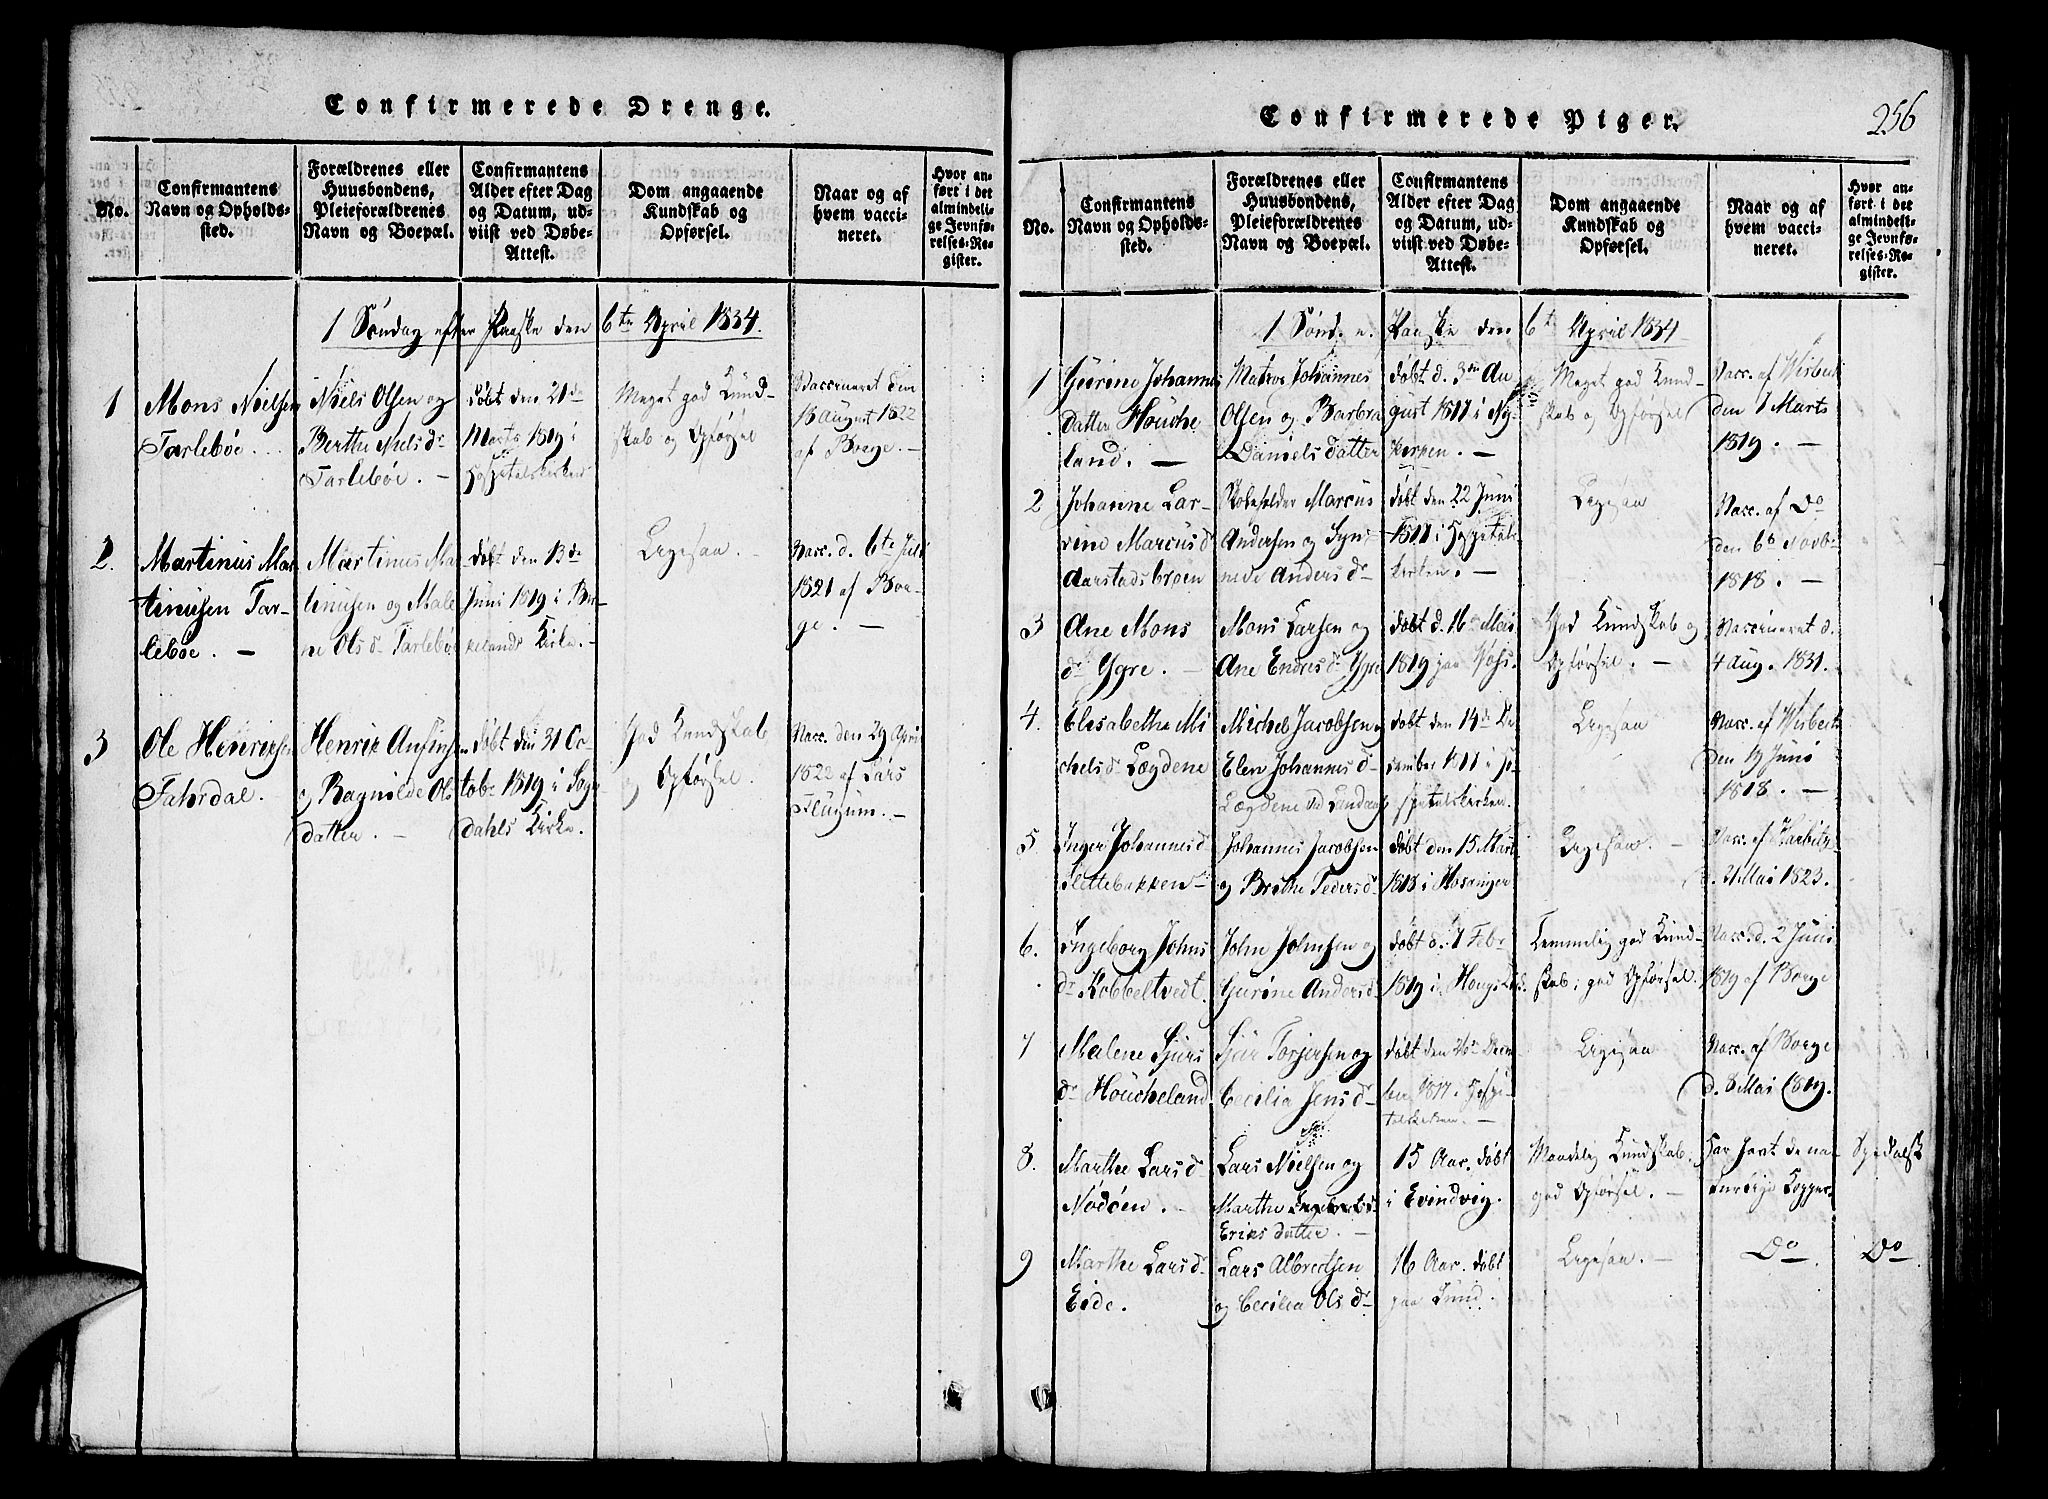 Confirmerede Drenge.
No.
Confirmantens
Navn og Opholds-
sted.
Forældrenes eller
Huusbondens,
Pleieforældrenes
Navn og Boepæl.
Confirmantens
Alder efter Dag
og Datum, ud-
viist ved Døbe-
Attest.
Dom angaaende
Kundskab og
Opførsel.
Naar og af
hvem vacci-
neret.
Hvor an-
ført i det
almindeli-
ge Jevnfø-
relses-Re-
gister.
1 Søndag efter Paaske den 6te April 1834.
1
Mons Nielsen
Tarlebøe
Niels Olsen og
Berthe Niels dr
Tarlebøe. -
døbt den 21de
Marts 1819 i
Hospitalskirken
Meget god Kund-
skab og Opførsel
Vaccineret den
18 August 1822
af Borge. -
2.
Martinus Mar-
tinusen Tar-
lebøe. -
Martinus Mar
tinusen og Male
ne Ols dr Tarlebøe
døbt den 13de
Juni 1819 i Bir-
kelands Kirke. -
Ligesaa. -
Vacc. d. 6te Juli
1821 af Bor-
ge. -
3
Ole Henriksen
Fahrdal. -
Henrik Anfins
og Ragnilde Ols
datter. -
døbt den 31 Oc-
tobr 1819 i Sogn
dahls Kirke.
God Kundskab
og Opførsel.
Vacc. den 29 April
1822 af Lars
Flugum. -
Confirmerede Piger.
256
No.
Confirmantens
Navn og Opholds-
sted.
Forældrenes eller
Huusbondens,
Pleieforældrenes
Navn og Boepæl.
Confirmantens
Alder efter Dag
og Datum, ud-
viist ved Døbe-
Attest.
Dom angaaende
Kundskab og
Opførsel.
Naar og af
hvem vacci-
neret.
Hvor an-
ført i det
almindeli-
ge Jevnfø-
relses-Re-
gister.
1 Sønd. e. Paaske den 6t April 1834
1
Giørine Johannes
datter Houche
land. -
Matros Johannes
Olsen og Barbra
Daniels datter
døbt d. 3die Au
gust 1817 i Ny-
kirken. -
Meget god Kund-
skab og Opførsel
Vacc. af Wisbech
den 7 Marts
1819. -
2
Johanne Lar-
rine Marcus dr
Aarstadsbroen
Andersen og Syn-
neve Anders dr
døbt den 22 Juni
1817 i Hospitals-
kirken. -
Ligesaa
Vacc. af Do
den 6te Novbr
1818. -
3
Ane Mons
dr Ygre. -
Mons Larsen og
Ane Endres dr Ygre
døbt d. 16 Mai
1819 paa Voss.
God Kundskab og
Opførsel. -
Vaccineret d.
4 Aug. 1831.
4.
Elisabetha Mi
chels dr Lægdene
Michel Jacobsen og
Elen Johannes dr
Lægdene ved Lindaas
døbt den 14de De
cember 1817 i Ho-
spitalskirken.
Ligesaa
Vacc. af Wisbech
den 19 Juni
1818. -
5.
Inger Johannes dr
Slettebakken
Johannes Jacobsen
og Brithe Peders dr
døbt den 15 Mart
1818 i Hosanger
Ligesaa. -
d. 21 Mai 1823.
6.
Ingeborg Johns
dr Kobbeltvedt
John Johnsen og
Gurine Anders dr
døbt d. 7 Febr
1819 i
Temmelig god Kund-
skab; god Opførsel.
Vacc. d. 2 Juni
1819 af Borge
7
Malene Sjurs
dr Houcheland
Sjur Torjersen og
Cecilia Jens dr
døbt den 26de Decem
ber 1817 i Hospi-
talskirken. -
Ligesaa
Vacc. af Borge
d. 8 Mai 1819.
8.
Marthe Lars d
Nødøen. -
Lars Nielsen og
Marthe Ingebrets dr
Eriks datter. -
15 Aar. døbt
i Evindvig.
Maadelig Kundskab.
god Opførsel. -
Har havt de na-
turlige Kopper.
Spedalsk
9
Marthe Lars dr
Eide.
Lars Albretsen
og Cecilia Ols dr
16 Aar. døbt
paa Sund.
Ligesaa. -
Do
Do